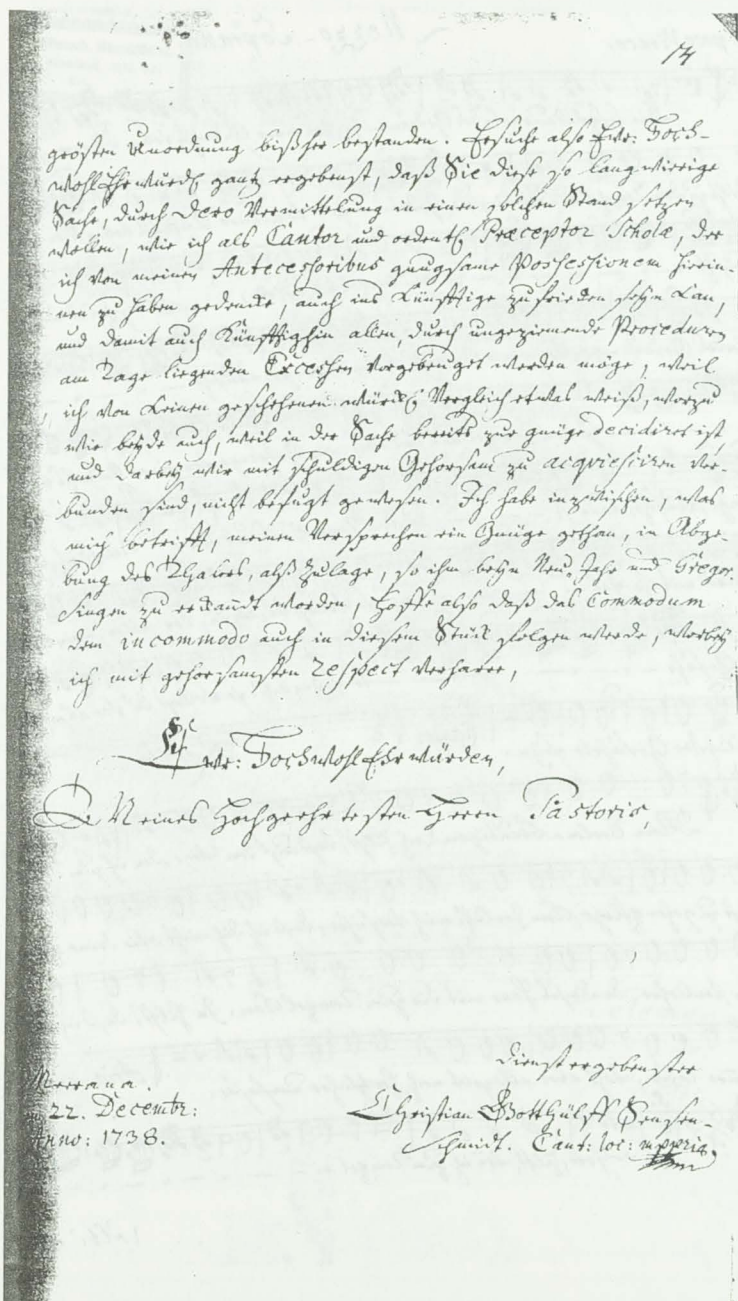 14
grösten Unordnung bißher bestanden. Ersuche also Ewr: Hoch-
wohlEhrwürd. gantz ergebenst, daß Sie diese so langwierige
Sache, durch Dero Vermittelung in einen solchen Stand setzen
wollen, wie ich als Cantor und ordentl. Præceptor Scholæ, der
ich von meinen Antecessoribus gnugsame Possessionem hierin-
nen zu haben gedencke, auch ins Künfftige zufrieden seyn kan,
und damit auch Künfftighin allen, durch ungeziemende Proceduren
am Tage liegenden Excessen vorgebeuget werden möge, weil
ich von keinen geschehenen würckl. Vergleich etwas weiß, worzu
wir beyde auch, weil in der Sache bereits zur gnüge decidiret ist,
und darbey wir mit schuldigen Gehorsam zu acquiesciren ver-
bunden sind, nicht befugt gewesen. Ich habe inzwischen, was
mich betrifft, meinen Versprechen ein Gnüge gethan, in Abge-
bung des Thalers, alß Zulage, so ihm beym Neu-Jahr und Gregor.
Singen zu erkandt worden, hoffe also daß das Commodum
dem incommodo auch in diesem Stück folgen werde, worbey
ich mit gehorsamsten Respect verharre,
Ewr: HochwohlEhrwürden,
Meines Hochgeehrtesten Herrn Pastoris,
Dienstergebenster
Merrana.
22. Decembr:
Anno: 1738.
Christian Gotthülff Sensen-
schmidt. Cant: loc: mppria